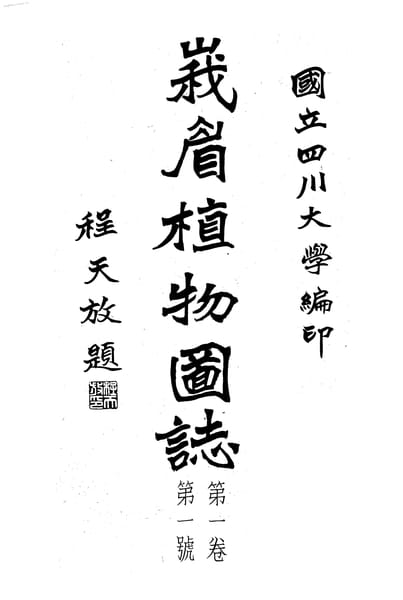 國立四川大學編印
峩眉植物圖誌
第一卷
第一號
程天放題
程天放印